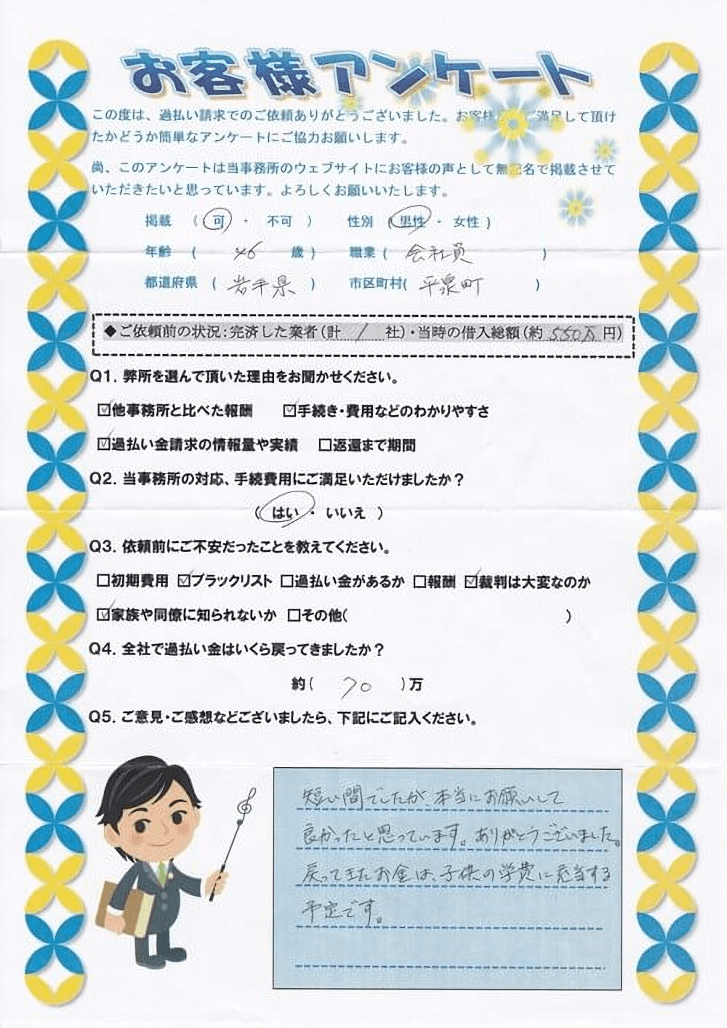 お客様アンケート
この度は、過払い請求でのご依頼ありがとうございました。お客様 ご満足して頂け
たかどうか簡単なアンケートにご協力お願いします。
尚、このアンケートは当事務所のウェブサイトにお客様の声として無記名で掲載させて
いただきたいと思っています。よろしくお願いいたします。
掲載 ( 可 ・ 不可 ) 性別 ( 男性 ・ 女性 )
年齢 ( 46 歳 ) 職業 ( 会社員 )
都道府県 ( 岩手県 ) 市区町村( 平泉町 )
◆ご依頼前の状況：完済した業者(計 1 社)・当時の借入総額(約 550万 円)
Q1. 弊所を選んで頂いた理由をお聞かせください。
☑他事務所と比べた報酬 ☑手続き・費用などのわかりやすさ
☑過払い金請求の情報量や実績 □返還まで期間
Q2. 当事務所の対応、手続費用にご満足いただけましたか？
( はい ・ いいえ )
Q3. 依頼前にご不安だったことを教えてください。
□初期費用 ☑ブラックリスト □過払い金があるか □報酬 ☑裁判は大変なのか
☑家族や同僚に知られないか □その他( )
Q4. 全社で過払い金はいくら戻ってきましたか？
約( 70 )万
Q5. ご意見・ご感想などございましたら、下記にご記入ください。
短い間でしたが、本当にお願いして
良かったと思っています。ありがとうございました。
戻ってきたお金は、子供の学費に充当する
予定です。